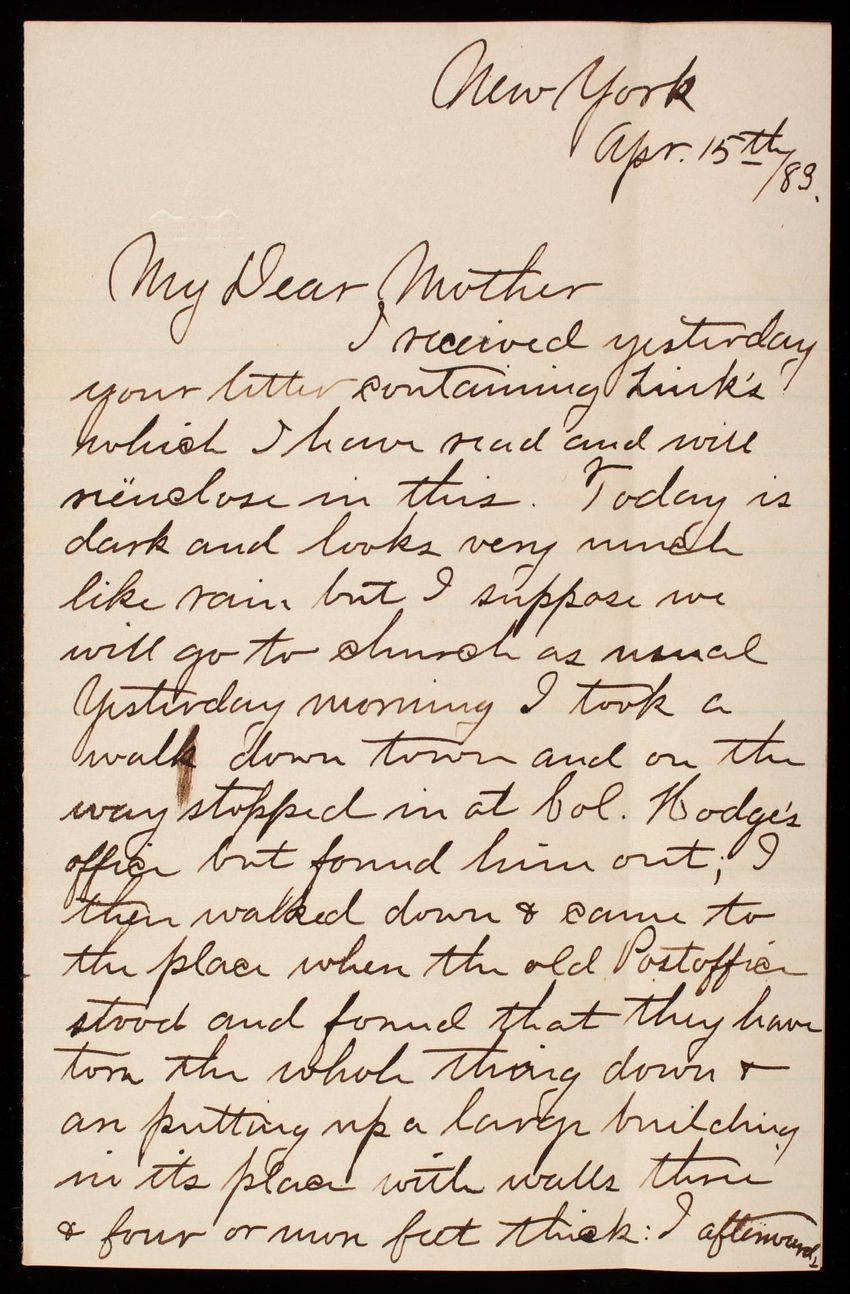 New York
Apr. 15th/83.
My Dear Mother
I received yesterday
your letter containing Link's
which I have read and will
reënclose in this. Today is
dark and looks very much
like rain but I suppose we
will go to church as usual
Yesterday morning I took a
walk down town and on the
way stopped in at Col. Hodge's
office but found him out; I
then walked down & came to
the place where the old Postoffice
stood and found that they have
torn the whole thing down &
are putting up a large building
in its place with walls three
& four or more feet thick: I afterwards